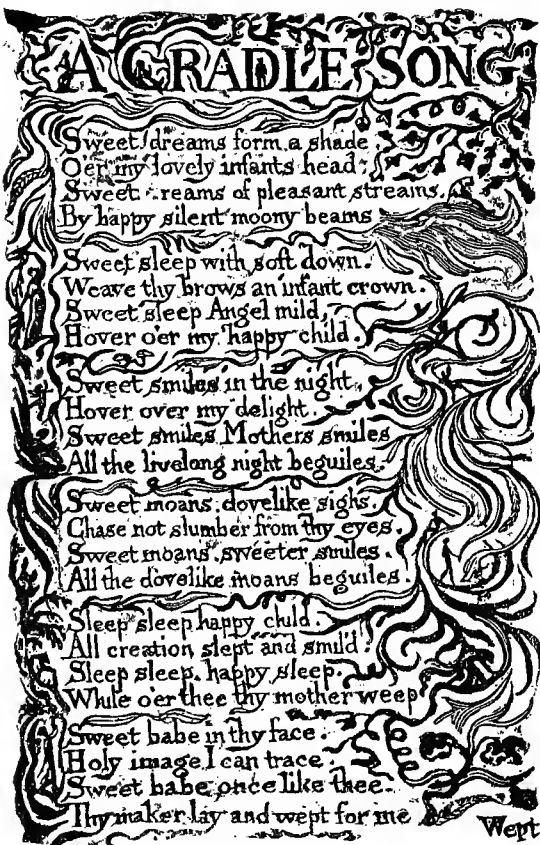 A CRADLE SONG
Sweet dreams form a shade
Oer my lovely infants head.
Sweet dreams of pleasant streams.
By happy silent moony beams
Sweet sleep with soft down.
Weave thy brows an infant crown.
Sweet sleep Angel mild,
Hover o'er my happy child.
Sweet smiles in the night
Hover over my delight.
Sweet smiles Mothers smiles
All the livelong night beguiles.
Sweet moans, dovelike sighs,
Chase not slumber from thy eyes.
Sweet moans, sweeter smiles.
All the dovelike moans beguiles.
Sleep sleep happy child.
All creation slept and smil'd.
Sleep sleep, happy sleep,
While o'er thee thy mother weep
Sweet babe in thy face,
Holy image I can trace.
Sweet babe once like thee.
Thy maker lay and wept for me
Wept